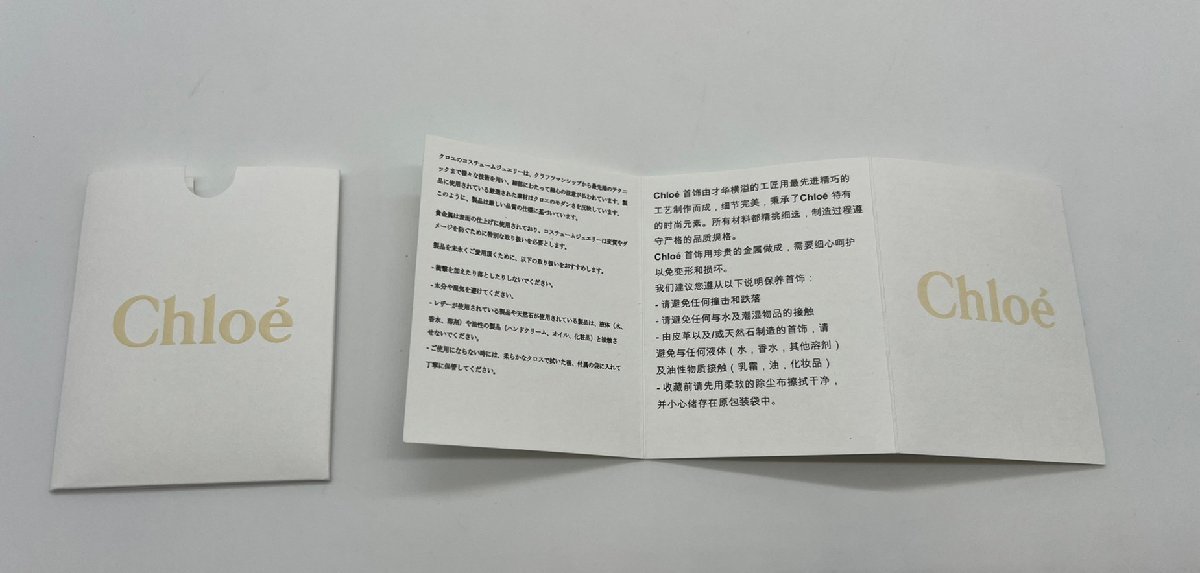 Chloé
クロエのコスチュームジュエリーは、クラフツマンシップから最先端のテクニ
ックまで様々な技術を用い、細部にわたって細心の注意が払われています。製
品に使用されている厳選された素材はクロエのモダンさを反映しています。
このように、製品は厳しい品質の仕様に基づいています。
貴金属は表面の仕上げに使用されており、コスチュームジュエリーは変質やダ
メージを防ぐために特別な取り扱いを必要とします。
製品を末永くご愛用頂くために、以下の取り扱いをおすすめします。
- 衝撃を加えたり落としたりしないでください。
- 水分や湿気を避けてください。
- レザーが使用されている製品や天然石が使用されている製品は、液体（水、
香水、溶剤）や油性の製品（ハンドクリーム、オイル、化粧品）と接触さ
せないでください。
- ご使用にならない時には、柔らかなクロスで拭いた後、付属の袋に入れて
丁寧に保管してください。
Chloé 首饰由才华横溢的工匠用最先进精巧的
工艺制作而成，细节完美，秉承了Chloé 特有
的时尚元素。所有材料都精挑细选，制造过程遵
守严格的品质规格。
Chloé 首饰用珍贵的金属做成，需要细心呵护
以免变形和损坏。
我们建议您遵从以下说明保养首饰：
- 请避免任何撞击和跌落
- 请避免任何与水及潮湿物品的接触
- 由皮革以及/或天然石制造的首饰，请
避免与任何液体（水，香水，其他溶剂）
及油性物质接触（乳霜，油，化妆品）
- 收藏前请先用柔软的除尘布擦拭干净，
并小心储存在原包装袋中。
Chloé